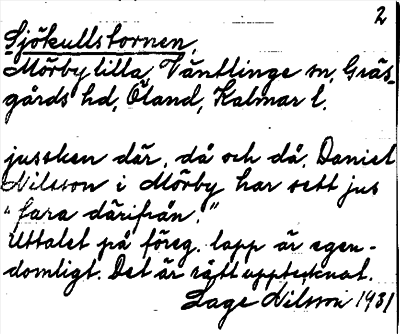 2
Sjökullstornen,
Mörby lilla, Ventlinge sn, Gräs-
gårds hd, Öland, Kalmar l.
jussken där, då och då. Daniel
Nilsson i Mörby har sett jus
"fara därifrån."
Uttalet på föreg. lapp är egen-
domligt. Det är rätt upptecknat.
Lage Nilsson 1931